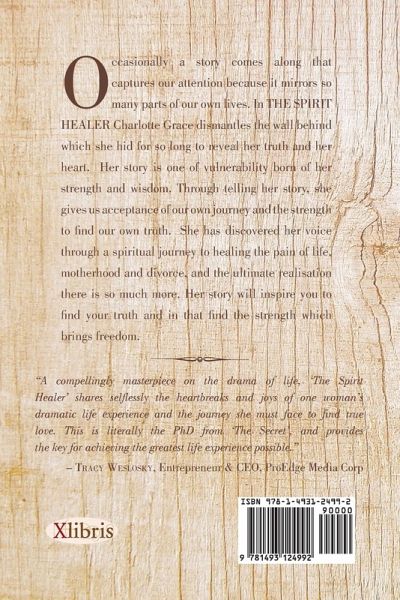 Occasionally a story comes along that
captures our attention because it mirrors so
many parts of our own lives. In THE SPIRIT
HEALER Charlotte Grace dismantles the wall behind
which she hid for so long to reveal her truth and her
heart. Her story is one of vulnerability born of her
strength and wisdom. Through telling her story, she
gives us acceptance of our own journey and the strength
to find our own truth. She has discovered her voice
through a spiritual journey to healing the pain of life,
motherhood and divorce, and the ultimate realisation
there is so much more. Her story will inspire you to
find your truth and in that find the strength which
brings freedom.
“A compellingly masterpiece on the drama of life, ‘The Spirit
Healer’ shares selflessly the heartbreaks and joys of one woman’s
dramatic life experience and the journey she must face to find true
love. This is literally the PhD from ‘The Secret’, and provides
the key for achieving the greatest life experience possible.”
– Tracy Weslosky, Entrepreneur & CEO, ProEdge Media Corp
Xlibris
ISBN 978-1-4931-2499-2
90000
9 781493 124992